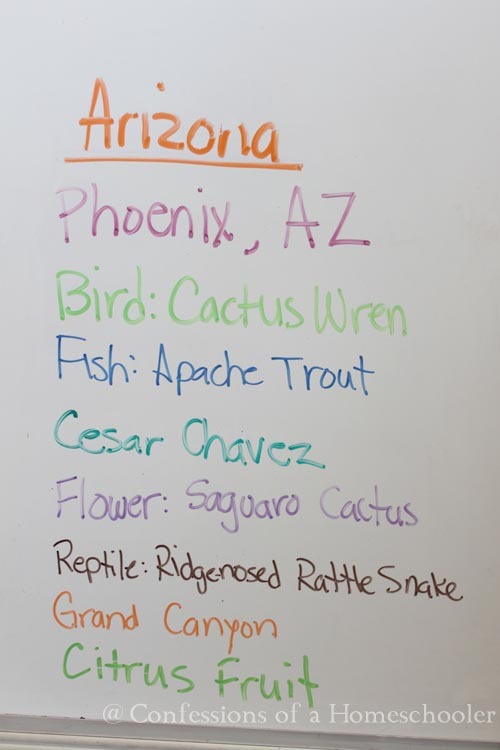 Arizona
Phoenix, AZ
Bird: Cactus Wren
Fish: Apache Trout
Cesar Chavez
Flower: Saguaro Cactus
Reptile: Ridge-nosed Rattle Snake
Grand Canyon
Citrus Fruit
@ Confessions of a Homeschooler